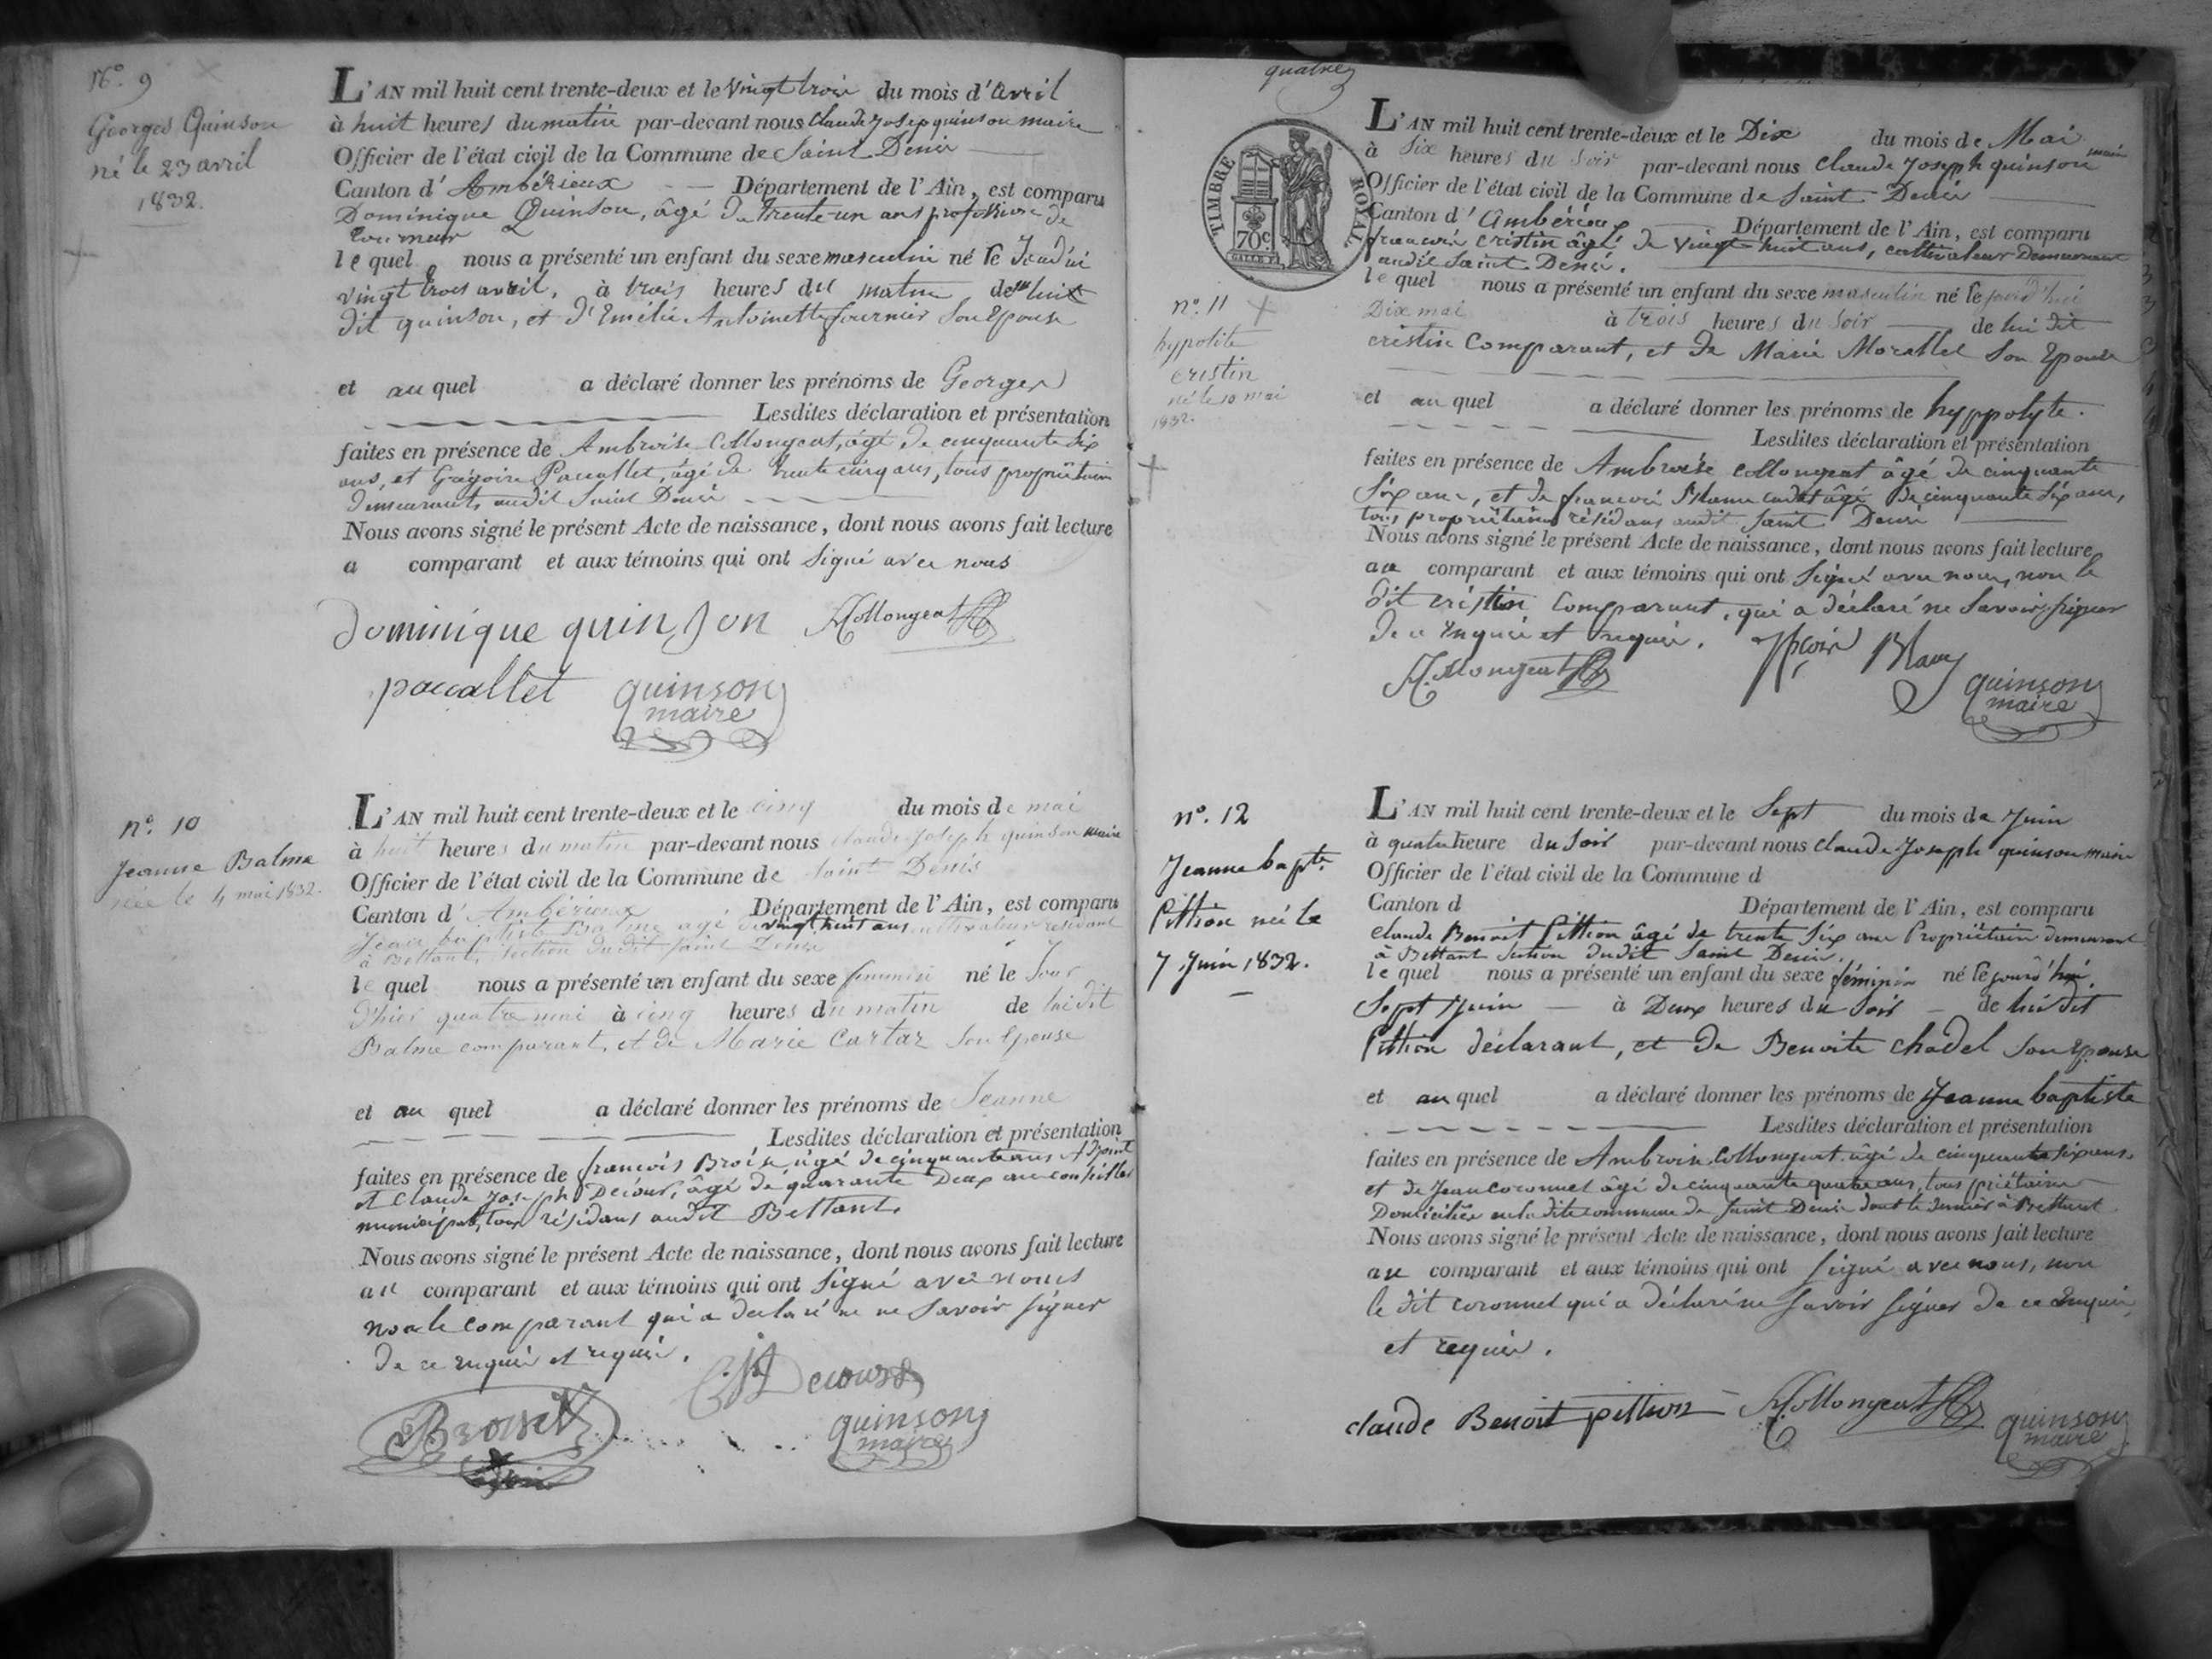 N.° 9
Georges Quinson
né le 23 avril
1832.
L'AN mil huit cent trente-deux et le vingt trois du mois d'avril
à huit heures du matin par-devant nous Claude Josep quinson maire
Officier de l'état civil de la Commune de Saint Denis
Canton d'Ambérieux Département de l'Ain, est comparu
Dominique Quinson, âgé de trente un ans profession de
tourneur
le quel nous a présenté un enfant du sexe masculin né le Jourd'ui
vingt trois avril, à trois heures du matin de lui
dit quinson, et d'Emélie Antoinette fournier son Epouse
et au quel a déclaré donner les prénoms de Georges
Lesdites déclaration et présentation
faites en présence de Ambroise Collongeat, âgé de cinquante six
ans, et Grégoire Pacallet, âgé de trente cinq ans, tous propriétaires
demeurants audit Saint Denis
Nous avons signé le présent Acte de naissance, dont nous avons fait lecture
a comparant et aux témoins qui ont signé avec nous
dominique quinson Collongeat
pacallet quinson
maire
n.° 10
Jeanne Balme
née le 4 mai 1832.
L'AN mil huit cent trente-deux et le cinq du mois de mai
à huit heures du matin par-devant nous claude Joseph quinson maire
Officier de l'état civil de la Commune de Saint Denis
Canton d'Ambérieux Département de l'Ain, est comparu
Jean baptiste Balme agé de vingt huit ans cultivateur résidant
à Bettant, section dudit Saint Denis
le quel nous a présenté un enfant du sexe féminin né le Jour
d'hier quatre mai à cinq heures du matin de lui dit
Balme comparant, et de Marie Cartaz son Epouse
et au quel a déclaré donner les prénoms de Jeanne
Lesdites déclaration et présentation
faites en présence de françois Broise, âgé de cinquante ans Adjoint
et Claude Joseph Decour, âgé de quarante Deux ans conseiller
municipal, tous résidans audit Bettant.
Nous avons signé le présent Acte de naissance, dont nous avons fait lecture
au comparant et aux témoins qui ont signé avec nous
non le comparant qui a déclaré ne ne Savoir signer
de ce enquis et requis.
Decour
Broise quinson
maire
quatre
TIMBRE ROYAL
70c.
n.° 11
hypolite
cristin
né le 10 mai
1832.
L'AN mil huit cent trente-deux et le Dix du mois de Mai
à Six heures du soir par-devant nous Claude Joseph quinson maire
Officier de l'état civil de la Commune de Saint Denis
Canton d'Ambérieux Département de l'Ain, est comparu
françois cristin âgé de vingt huit ans, cultivateur Demeurant
audit Saint Denis.
le quel nous a présenté un enfant du sexe masculin né le jourd'hui
Dix mai à trois heures du soir de lui dit
cristin comparant, et de Marie Morellet son Epouse
et au quel a déclaré donner les prénoms de hyppolyte.
Lesdites déclaration et présentation
faites en présence de Ambroise Collongeat âgé de cinquante
six ans, et de françois Blanc cadet âgé De cinquante Six ans,
tous propriétaires résidans audit Saint Denis
Nous avons signé le présent Acte de naissance, dont nous avons fait lecture
au comparant et aux témoins qui ont signé avec nous, non le
dit cristin comparant, qui a déclaré ne Savoir signer
De ce Enquis et requis.
Collongeat Blanc quinson
maire
n.° 12
Jeanne bapte
Pittion née le
7 Juin 1832.
L'AN mil huit cent trente-deux et le Sept du mois de Juin
à quatre heure du Soir par-devant nous claude Joseph quinson maire
Officier de l'état civil de la Commune d
Canton d Département de l'Ain, est comparu
claude Benoit Pittion âgé de trente Six ans Propriétaire demeurant
à Bettant Section dudit Saint Denis.
le quel nous a présenté un enfant du sexe féminin né le jourd'hui
Sept Juin à Deux heures du Soir de lui dit
Pittion déclarant, et De Benoite chadel son Epouse
et au quel a déclaré donner les prénoms de Jeanne baptiste
Lesdites déclaration et présentation
faites en présence de Ambroise Collongeat âgé de cinquante six ans
et de Jean Coronnel âgé de cinquante quatre ans, tous priétaires
Domiciliés en la dite commune de Saint Denis dont le dernier à Bettant
Nous avons signé le présent Acte de naissance, dont nous avons fait lecture
au comparant et aux témoins qui ont signé avec nous, non
le dit coronnel qui a déclaré ne Savoir signer De ce enquis,
et requis.
claude Benoit pittion Collongeat quinson
maire